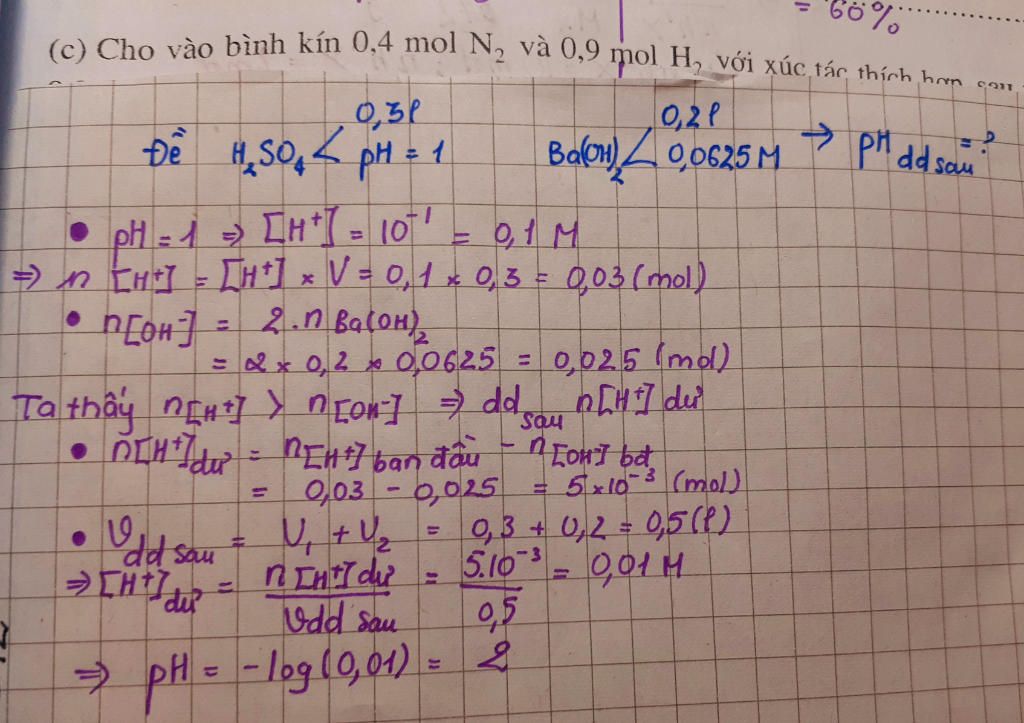 = 60%
(c) Cho vào bình kín 0,4 mol N₂ và 0,9 mol H₂ với xúc tác thích hợp sau
Đề H₂SO₄ < 0,3l pH = 1 Ba(OH)₂ < 0,2l 0,0625 M → pH dd sau = ?
• pH = 1 ⇒ [H⁺] = 10⁻¹ = 0,1 M
⇒ n [H⁺] = [H⁺] × V = 0,1 × 0,3 = 0,03 (mol)
• n[OH⁻] = 2.n Ba(OH)₂
= 2 × 0,2 × 0,0625 = 0,025 (mol)
Ta thấy n[H⁺] > n[OH⁻] ⇒ dd sau n[H⁺] dư
• n[H⁺] dư = n[H⁺] ban đầu - n[OH⁻] bđ
= 0,03 - 0,025 = 5×10⁻³ (mol)
• V dd sau = V₁ + V₂ = 0,3 + 0,2 = 0,5 (l)
⇒ [H⁺] dư = n[H⁺] dư / Vdd sau = 5.10⁻³ / 0,5 = 0,01 M
⇒ pH = -log(0,01) = 2